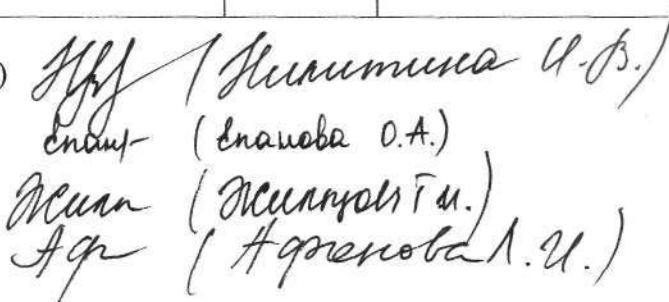 ) (Никитина И.В.)
Епан (Епанова О.А.)
Жили (Жильцова Г.И.)
Аф (Афенова Л.И.)